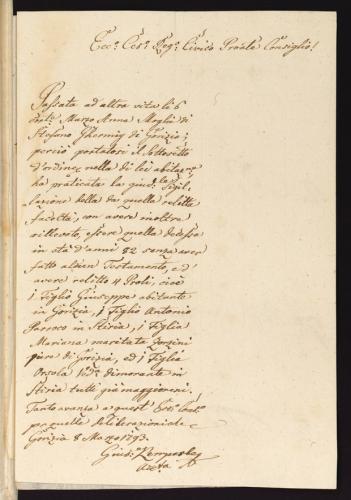 Ecc. Ces. Reg. Civico Prõale Consiglio!
Passata ad altra vita li 6
Marzo Anna Moglie di
Stefano di Gorizia;
perciò portatosi il Sottoscritto
d'ordine nella di lei abitaz.
ha praticata la giud.le Sigil-
lazione della da quella relitta
facoltà, con avere inoltre
rillevato, essere quella decessa
in età d'anni 82 senza aver
fatto alcun Testamento, ed
avere relitto 4 Proli, cioè
1 Figlio Giuseppe abitante
in Gorizia, 1 Figlio Antonio
Parroco in Stiria, 1 Figlia
Mariana maritata
pure di Gorizia, ed 1 Figlia
Orsola dimorante in
Stiria tutti già maggiorenni.
Tanto avanza a quest' Ecc.
per quelle deliberazioni che
Gorizia 8 Marzo 1793.
Gius.